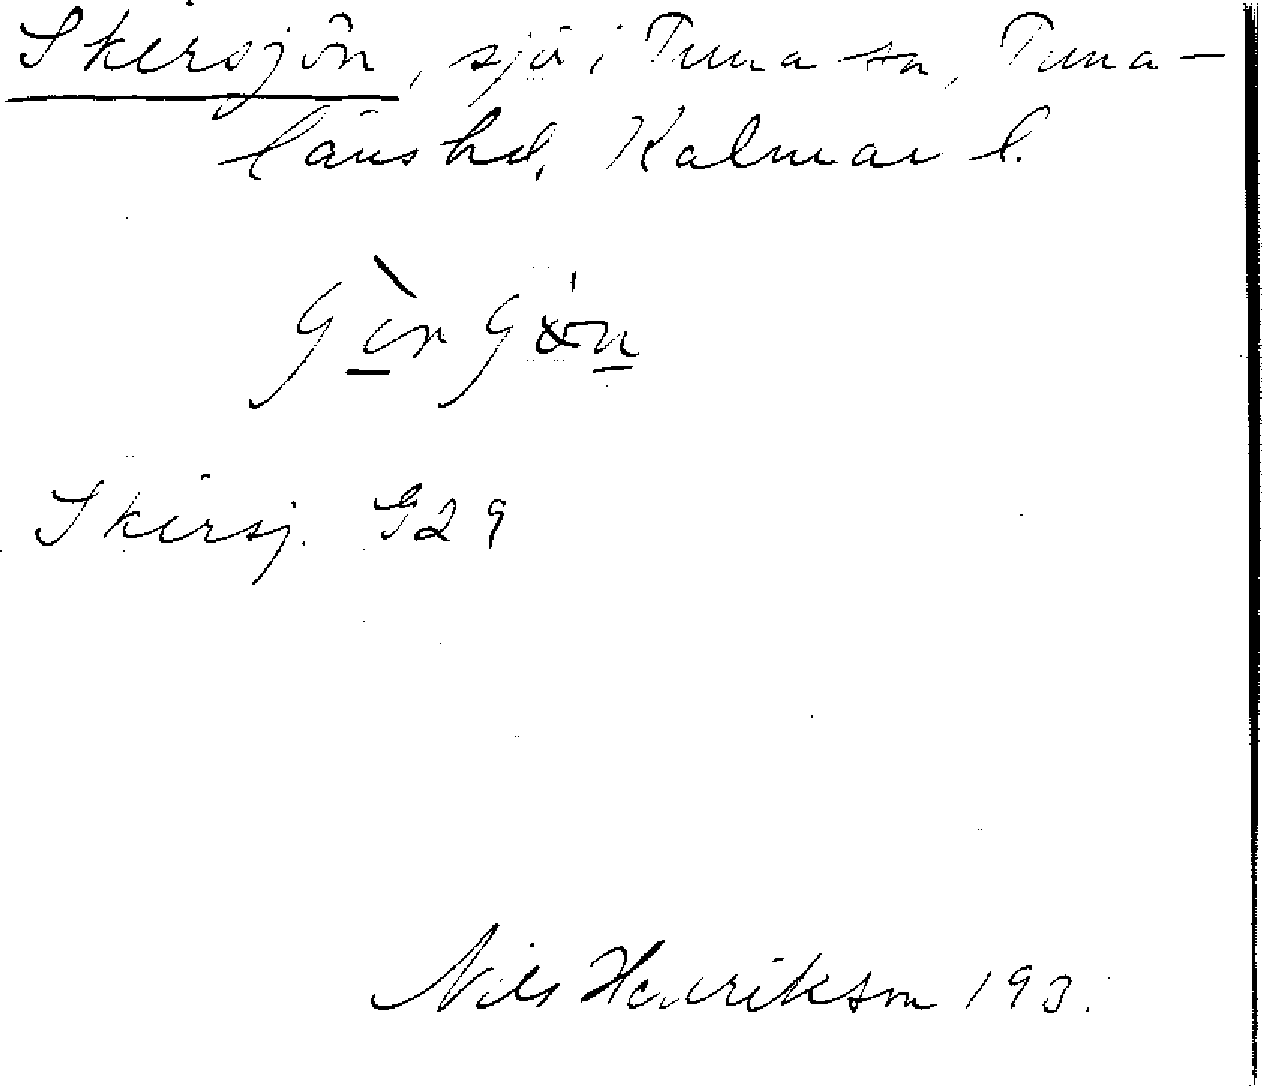 Skirsjön, sjö i Tuna sn, Tuna-
läns hd, Kalmar l.
Skirsj. G29
Nils Henrikson 193.